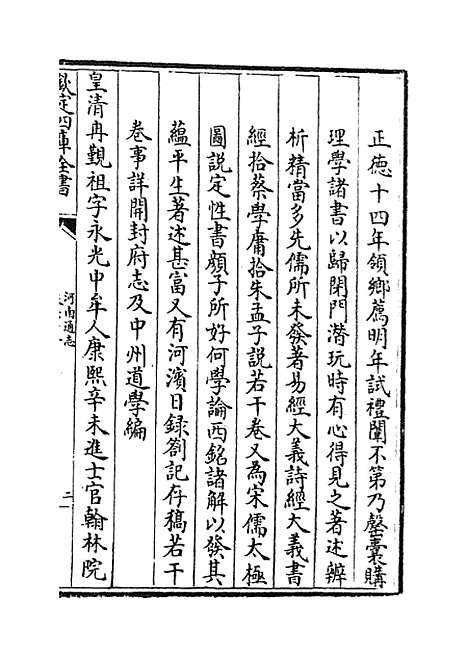 正德十四年領鄉薦明年試禮闈不第乃罄囊購
理學諸書以歸閉門潛玩時有心得見之著述辨
析精當多先儒所未發著易經大義詩經大義書
經拾蔡學庸拾朱孟子說若干卷又為宋儒太極
圖說定性書顏子所好何學論西銘諸解以發其
蘊平生著述甚富又有河濱日録劄記存稿若干
卷事詳開封府志及中州道學編
皇清冉覲祖字永光中牟人康熙辛未進士官翰林院
欽定四庫全書
河南通志